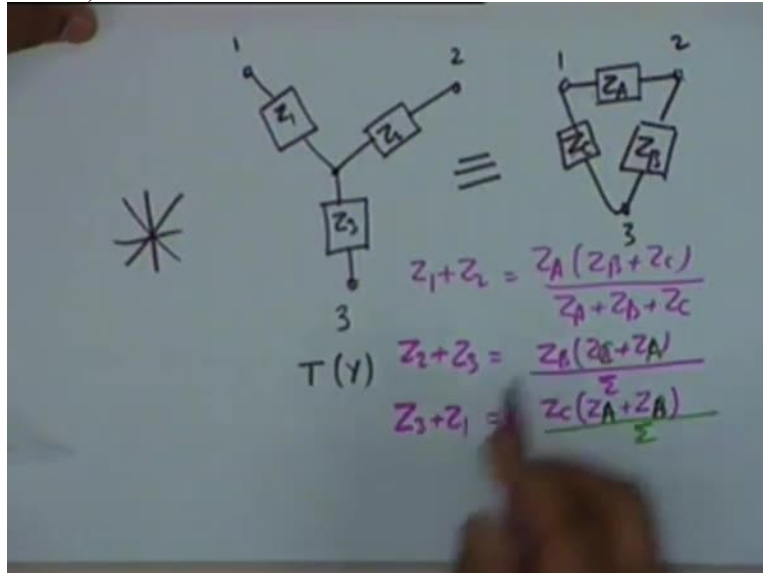 1
2
Z1
Z2
Z3
3
≡
1
2
ZA
ZC
ZB
3
Z1+Z2 = ZA(ZB+ZC)
ZA+ZB+ZC
T(Y)
Z2+Z3 = ZB(ZC+ZA)
Σ
Z3+Z1 = ZC(ZA+ZB)
Σ